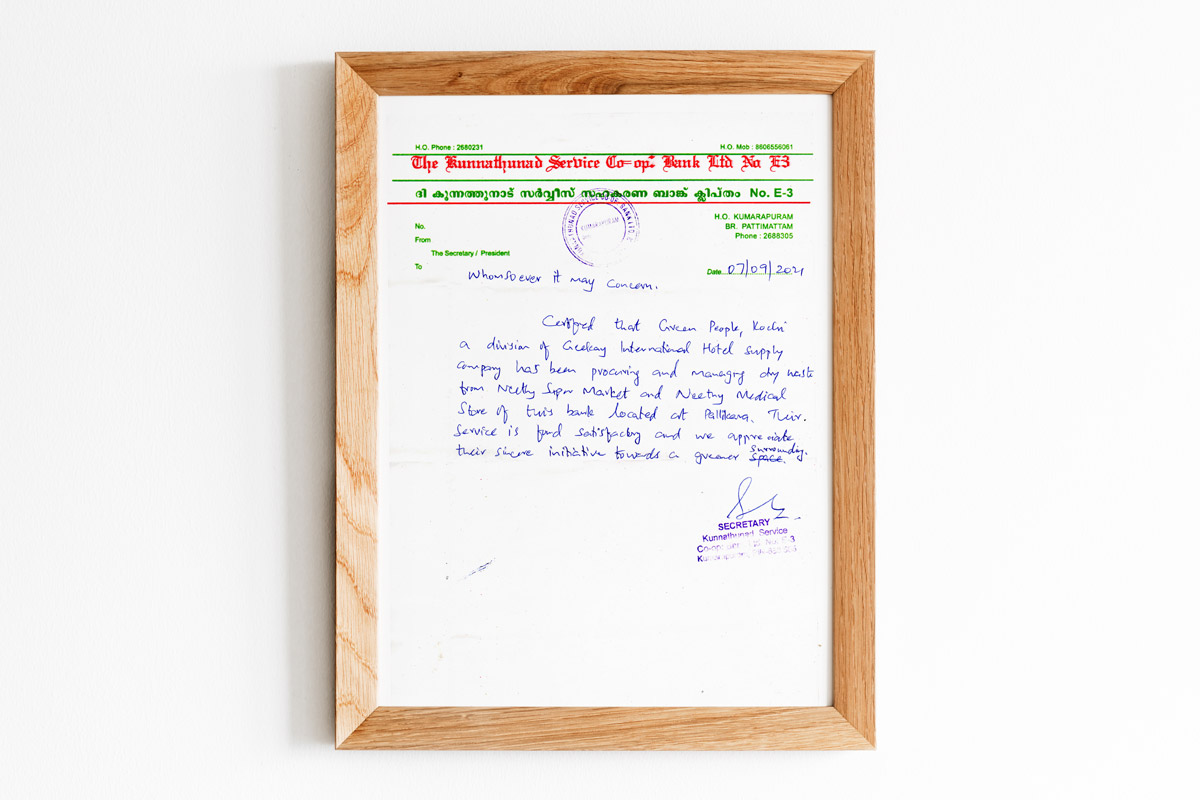 H.O. Phone : 2680231
H.O. Mob : 8606556061
The Kunnathunad Service Co-op: Bank Ltd No E3
ദി കുന്നത്തുനാട് സർവ്വീസ് സഹകരണ ബാങ്ക് ക്ലിപ്തം No. E-3
KUMARAPURAM
H.O. KUMARAPURAM
BR. PATTIMATTAM
Phone : 2688305
No.
From
The Secretary / President
To
Date 07/09/2021
Whomsoever it may concern.
Certified that Green People, Kochi
a division of Geekay International Hotel supply
company has been procuring and managing dry waste
from Neethy Super Market and Neethy Medical
Store of this bank located at Pallikara. Their
Service is found satisfactory and we appreciate
their sincere initiative towards a greener surrounding.
SECRETARY
Kunnathunad Service